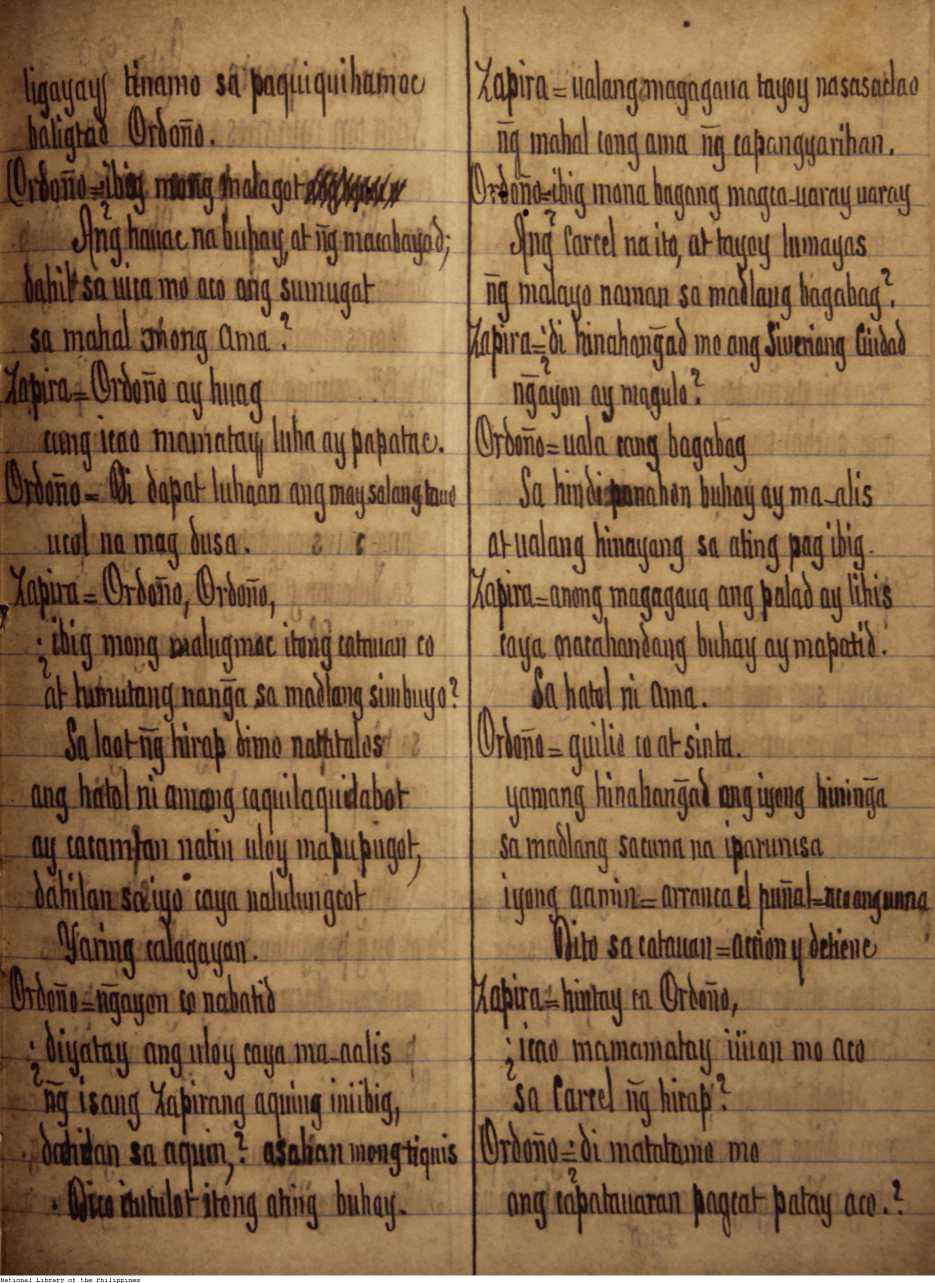 ligayay tinamo sa paquiquihamoc
baligtad Ordoño.
Ordoño=ibig mong malagot
Ang hauac na buhay, at ñg macabayad;
dahil sa uica mo aco ang sumugat
sa mahal mong ama?
Zapira=Ordoño ay huag
cung icao mamatay luha ay papatac.
Ordoño= Di dapat luhaan ang may salang
ucol na mag dusa.
Zapira=Ordoño, Ordoño,
¿ibig mong malugmoc itong catauan co
at tumutang nanga sa madlang simbuyo?
Sa laot ñg hirap dimo
ang hatol ni amang caquilaquidabot
ay catampan natin uloy mapupugot,
dahilan sa iyo caya nalulungcot
Yaring calagayan.
Ordoño=ñgayon co nabatid
¿diyatay ang uloy caya ma-aalis
ñg isang Zapirang aquing iniibig,
dahilan sa aquin,? asahan mong tiquis
itutulot itong ating buhay.
Zapira=ualang magagaua tayoy nasasaclao
ñg mahal cong ama ñg capangyarihan.
Ordoño=ibig mona bagang magca-uaray uaray
¿Ang Carcel na ito, at tayoy lumayas
ñg malayo naman sa madlang bagabag?.
Zapira=¿di hinahang̃ad mo ang Siveriang Ciudad
ñg̃ayon ay magulo?
Ordoño=uala cang bagabag
Sa hindi panahon buhay ay ma-alis
at ualang hinayang sa ating pag ibig.
Zapira=anong magagaua ang palad ay lihis
caya macahandang buhay ay mapatid.
Sa hatol ni ama.
Ordoño=guilio co at sinta.
yamang hinahang̃ad ang iyong hining̃a
sa madlang sacuna na iparunisa
iyong aamin=arranca el puñal=aco ang unna
Dito sa catauan=action y detiene
Zapira=hintay ca Ordoño,
¿icao mamamatay iiuan mo aco
sa Carcel ñg hirap?
Ordoño=¿di matatamo mo
ang capatauaran pagcat patay aco.?
National Library of the Philippines